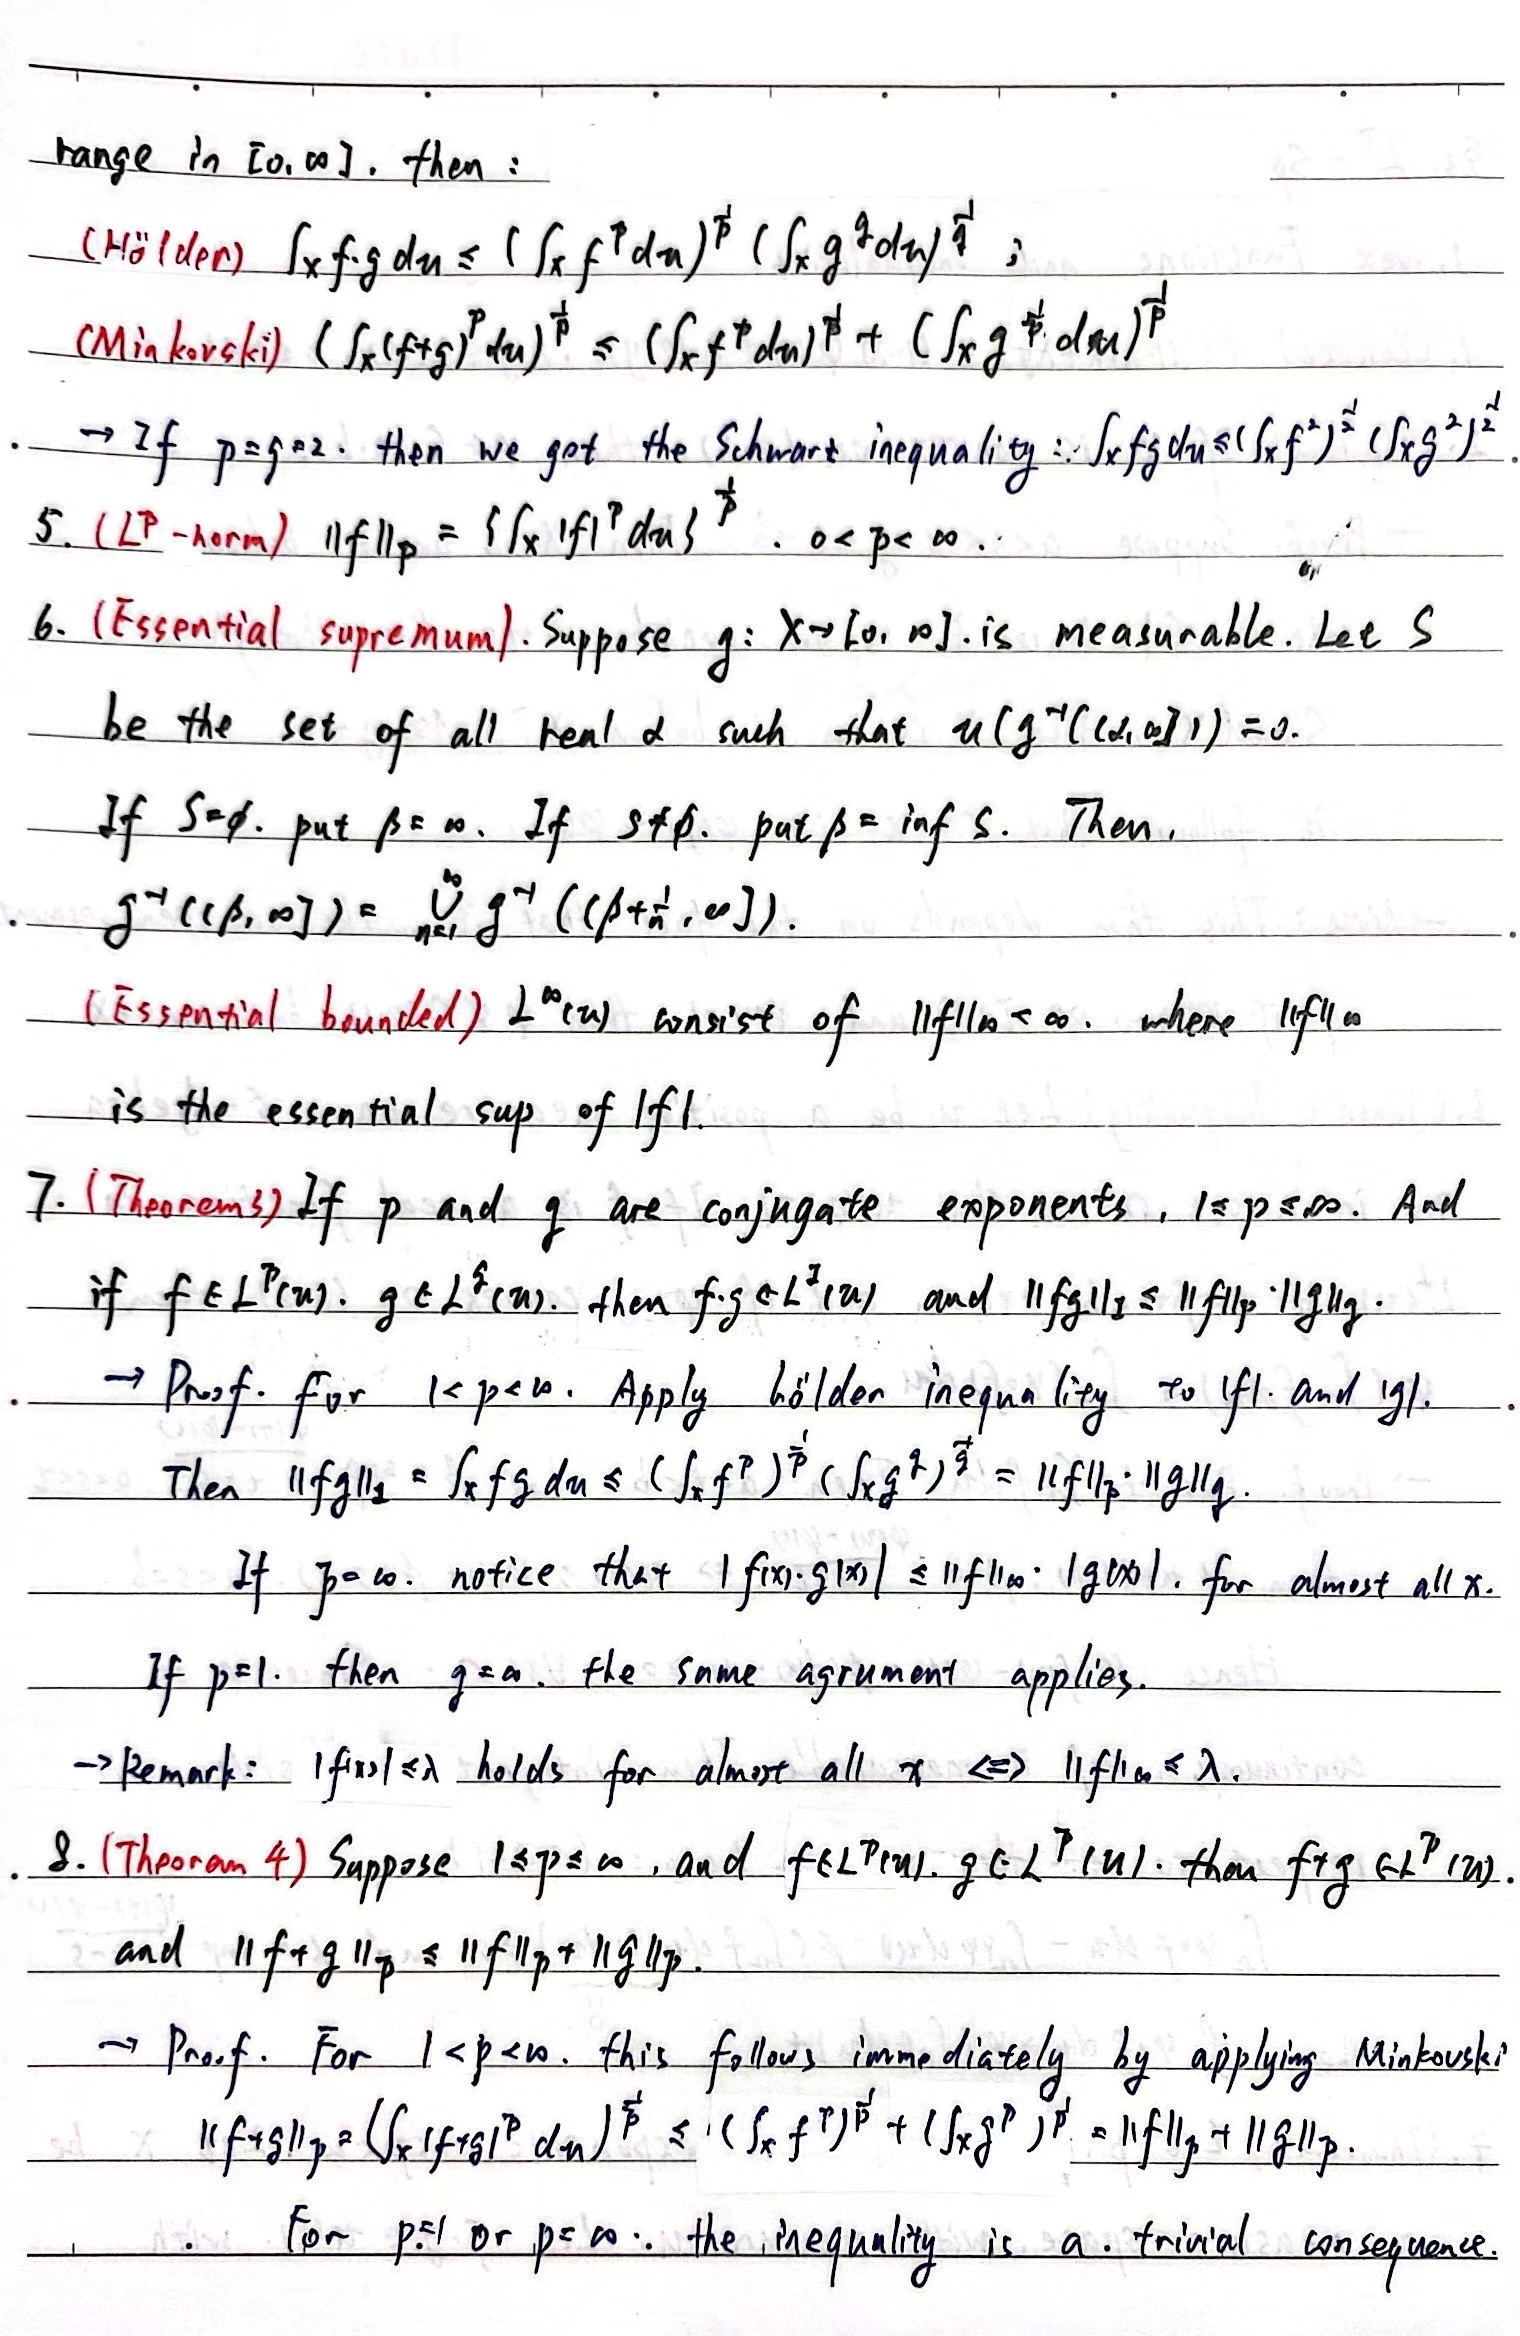 range in [0, ∞]. then :
(Hölder) ∫x f·g du ≤ (∫x f^p du)^1/p (∫x g^q du)^1/q ;
(Minkovski) (∫x (f+g)^p du)^1/p ≤ (∫x f^p du)^1/p + (∫x g^1/p du)^1/p
→ If p=q=2. then we get the Schwarz inequality : ∫x fg du ≤ (∫x f²)^1/2 (∫x g²)^1/2.
5. (L^p-norm) ||f||p = {∫x |f|^p du}^1/p. 0 < p < ∞.
6. (Essential supremum). Suppose g: X→[0, ∞]. is measurable. Let S
be the set of all real α such that u(g⁻¹((α, ∞])) = 0.
If S=∅. put β = ∞. If S≠∅. put β = inf S. Then,
g⁻¹((β, ∞]) = ∪_{n=1}^∞ g⁻¹((β+1/n, ∞]).
(Essential bounded) L^∞(u) consist of ||f||∞ < ∞. where ||f||∞
is the essential sup of |f|.
7. (Theorem3) If p and q are conjugate exponents, 1≤p≤∞. And
if f∈L^p(u). g∈L^q(u). then f·g∈L^1(u) and ||fg||1 ≤ ||f||p·||g||q.
→ Proof. For 1<p<∞. Apply hölder inequality to |f|. and |g|.
Then ||fg||1 = ∫x fg du ≤ (∫x f^p)^1/p (∫x g^q)^1/q = ||f||p·||g||q.
If p=∞. notice that |f(x)·g(x)| ≤ ||f||∞·|g(x)|. for almost all x.
If p=1. then q=∞. the same agrument applies.
→Remark: |f(x)|≤λ holds for almost all x <=> ||f||∞ ≤ λ.
8. (Theoram 4) Suppose 1≤p≤∞, and f∈L^p(u). g∈L^p(u). then f+g∈L^p(u).
and ||f+g||p ≤ ||f||p + ||g||p.
→ Proof. For 1<p<∞. this follows immediately by applying Minkovski
||f+g||p = (∫x |f+g|^p du)^1/p ≤ (∫x f^p)^1/p + (∫x g^p)^1/p = ||f||p + ||g||p.
For p=1 or p=∞. the inequality is a trivial consequence.